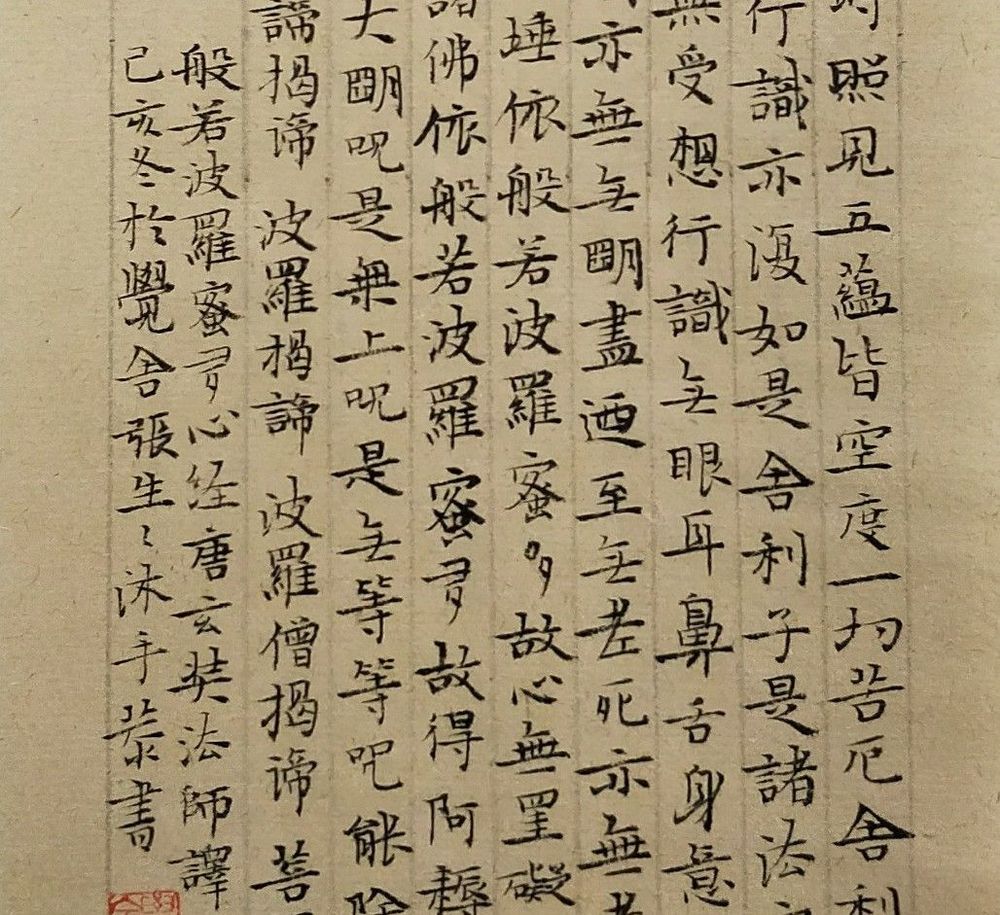 照見五蘊皆空度一切苦厄舍利
行識亦復如是舍利子是諸法
無受想行識无眼耳鼻舌身意
亦無无朙盡迺至无老死亦無老
埵依般若波羅蜜多故心無罣礙
諸佛依般若波羅蜜多故得阿耨
大朙呪是無上呪是无等等呪能除
諦揭諦 波羅揭諦 波羅僧揭諦 菩
般若波羅蜜多心経唐玄奘法師譯
己亥冬於覺舍張生〻沐手恭書